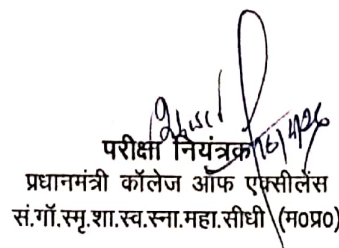 16/4/26
परीक्षा नियंत्रक
प्रधानमंत्री कॉलेज ऑफ एक्सीलेंस
सं.गाँ.स्मृ.शा.स्व.स्ना.महा.सीधी (म०प्र०)